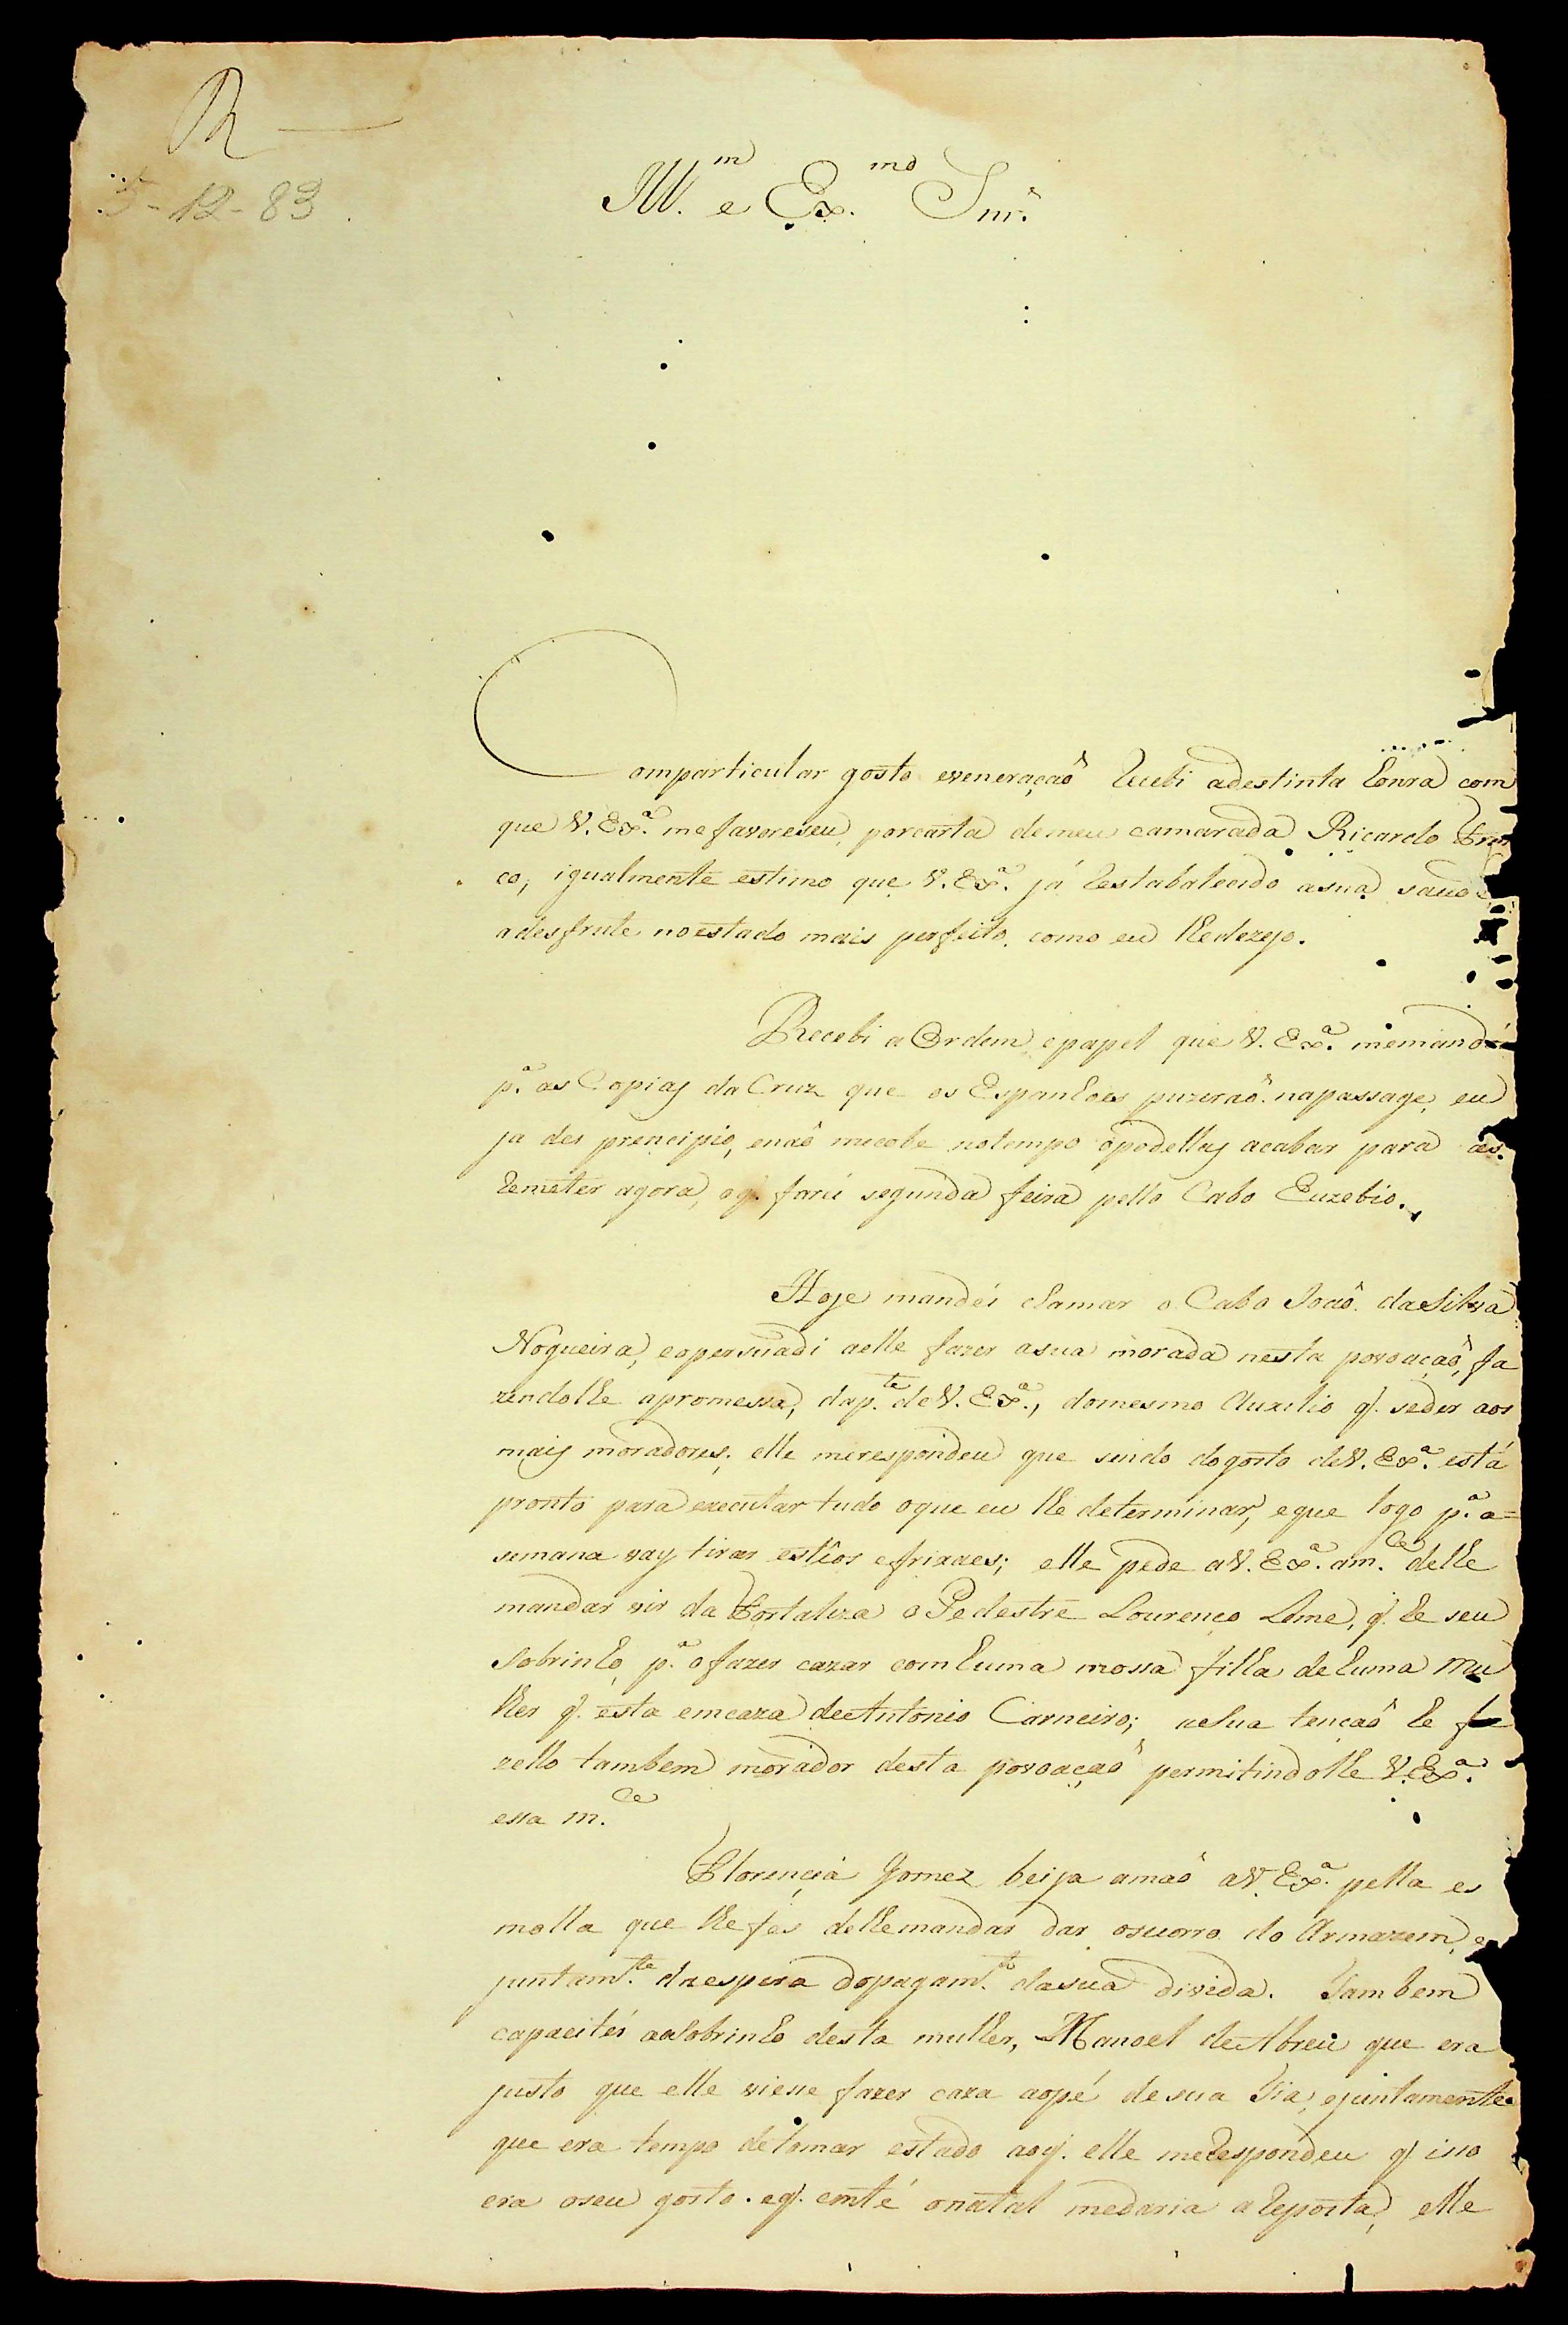 R
5-12-83
Ill.m e Ex.mo Snr.
Comparticular gosto eveneração Recebi adestinta honra com
que V. Ex.a mefavoreseu, porcarta demeu camarada Ricardo Fran
co, igualmente estimo que V. Ex.a já Restabalecido asua saude
adesfrute noestado mais perfeito, como eu lhedezejo.
Recebi a Ordem, epapel que V. Ex.a memandou
p.a as Copias da Cruz que os Espanhoes puzerão napassage, eu
ja dei prencipio, enaõ mecobe notempo opodellas acabar para as
Remeter agora, oq. farei segunda feira pello Cabo Euzebio.
Hoje mandéi chamar o Cabo Joaõ daSilva
Nogueira, eopersuadi aelle fazer asua morada nesta povoaçaõ, fa
zendolhe apromessa, dap.te deV. Ex.a, domesmo Auxilio q. seder aos
mais moradores; elle merespondeu que sendo dogosto deV. Ex.a está
pronto para executar tudo oque eu lhe determinar, eque logo p.a a=
semana vay tirar estêos efrixaes; elle pede aV. Ex.a am.ce delhe
mandar vir da Fortaleza o Pedestre Lourenço Leme, q. he seu
Sobrinho, p.a ofazer cazar comhuma mossa filha dehuma Mu
lher q. esta emcaza deAntonio Carneiro; aSua tençaõ he fa
zello tambem morador desta povoaçaõ permitindolhe V. Ex.a
essa m.ce
Florençia Gomez beija amaõ aV. Ex.a pella es
molla que lhefes delhemandar dar osucorro do Armazem, e
juntam.te daespera dopagam.to dasua divida. Tambem
capacitéi aoSobrinho desta mulher, Manoel deAbreu que era
justo que elle viesse fazer caza aopé desua Tia, ejuntamente
que era tempo detomar estado aoq. elle meRespondeu q. isso
era oseu gosto. eq. emté onatal medaria aReposta, elle